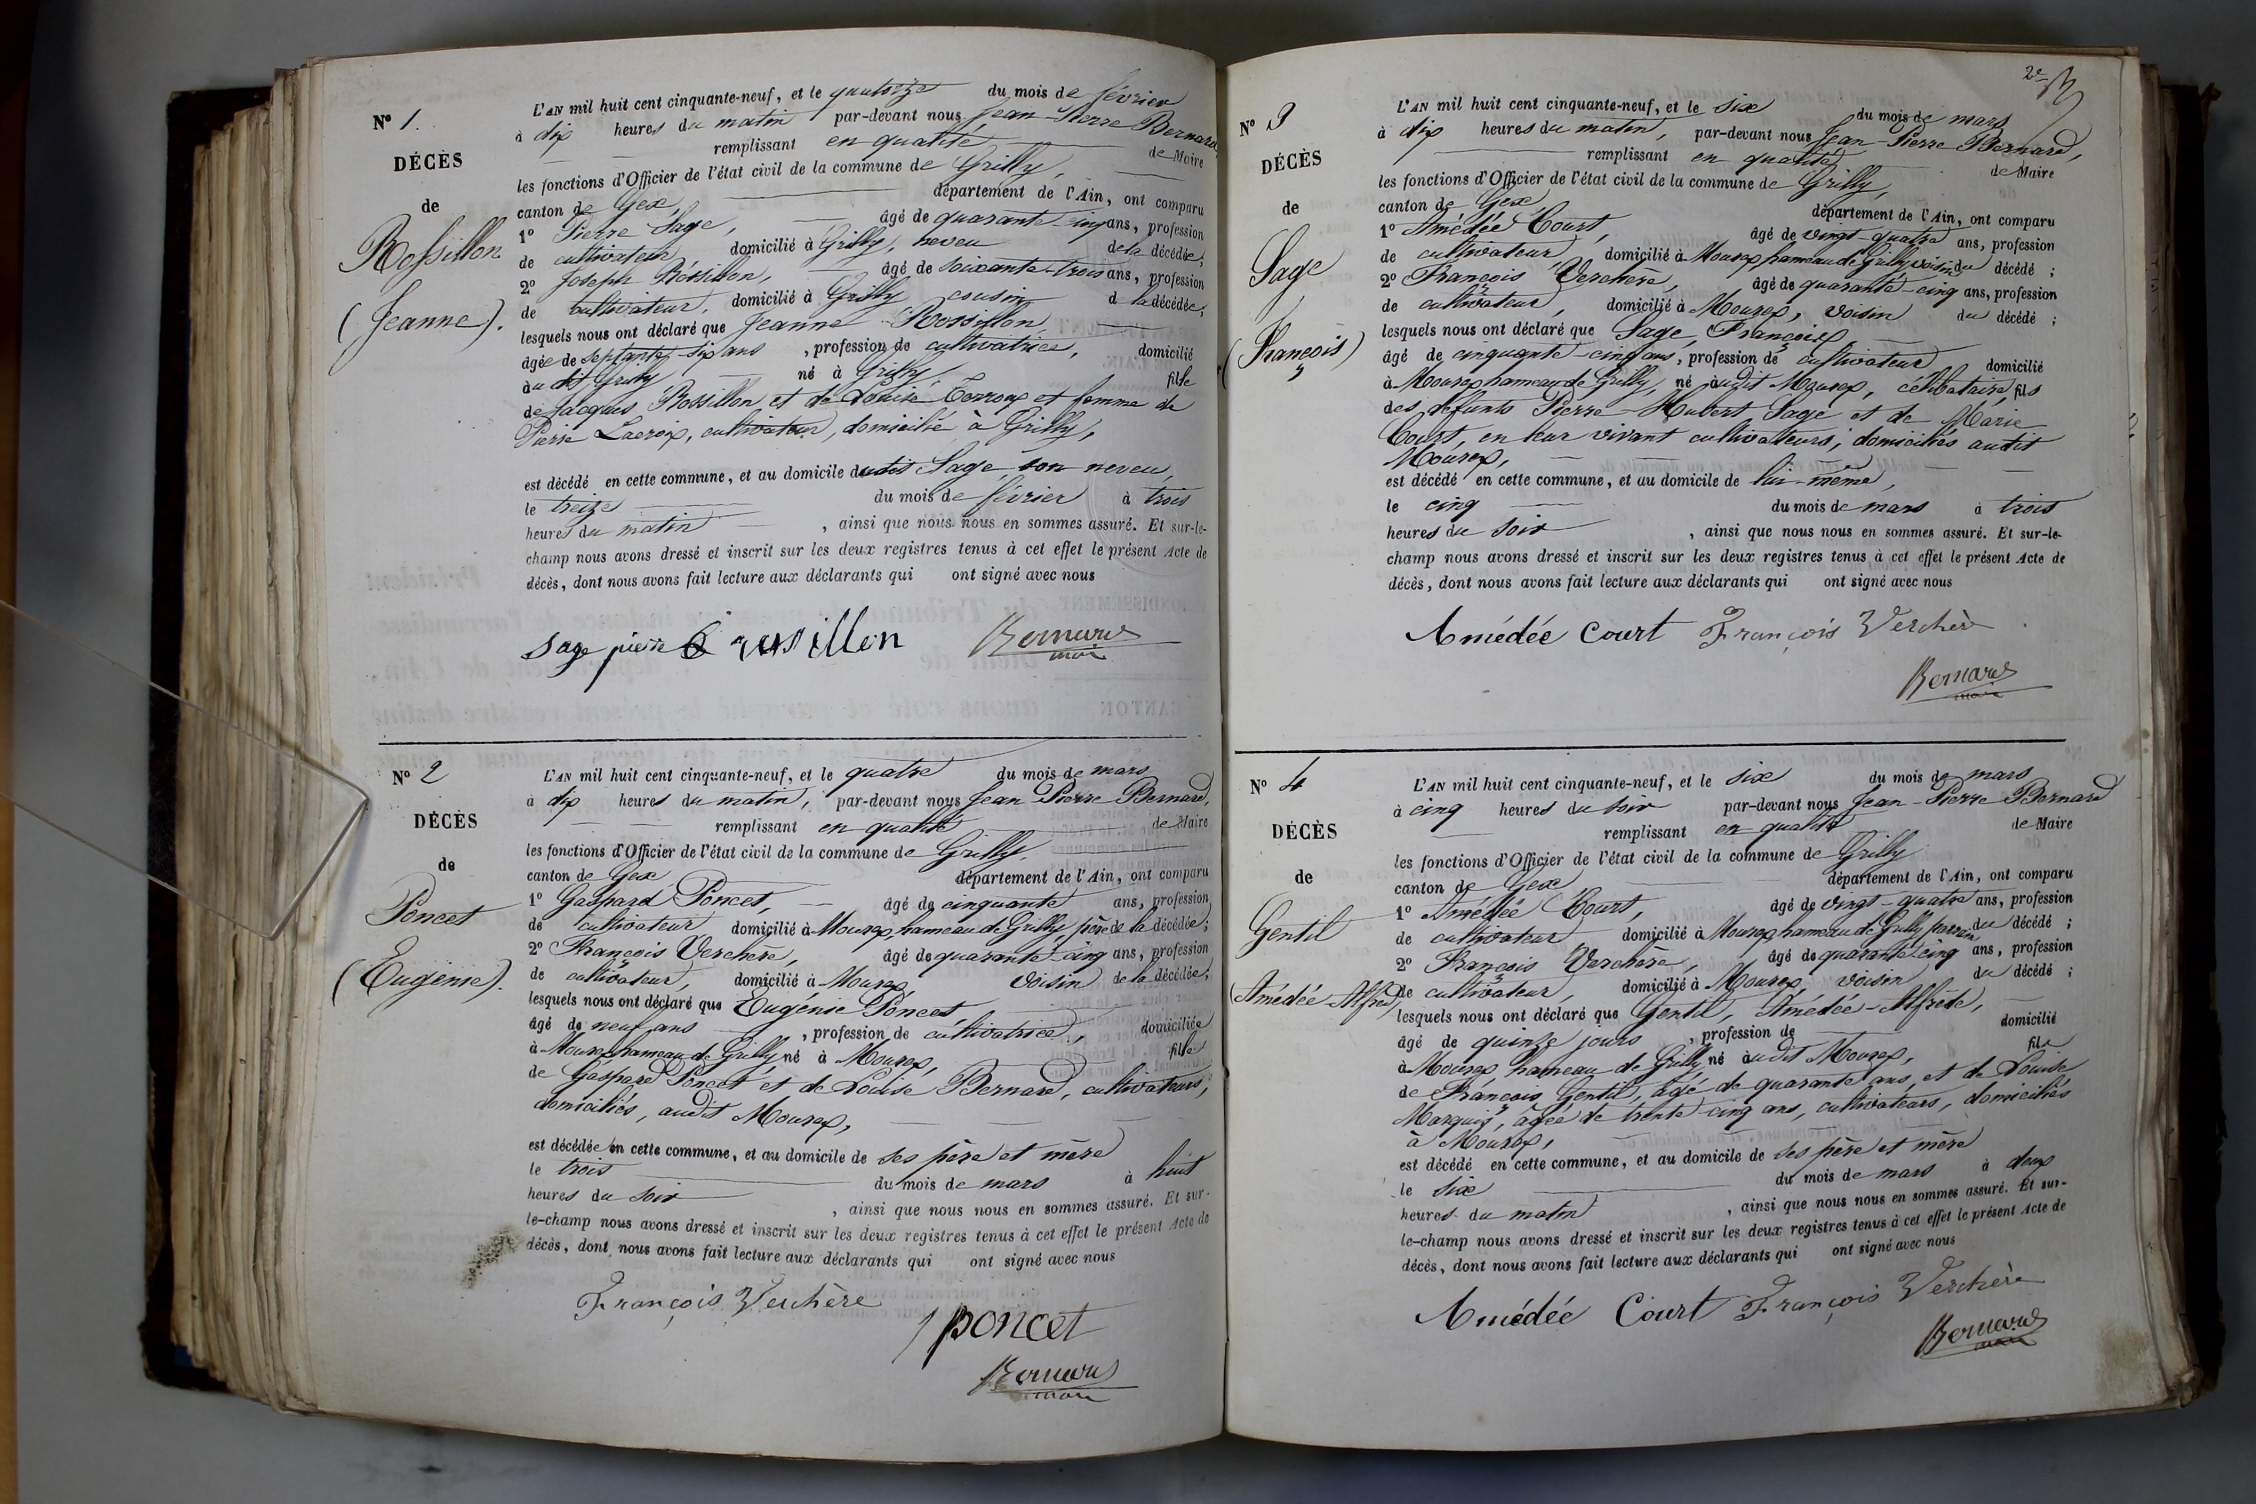 N° 1.
DÉCÈS
de
Rossillon
(Jeanne).
L'AN mil huit cent cinquante-neuf, et le quatorze du mois de février
à dix heures du matin par-devant nous Jean-Pierre Bernard
remplissant en qualité de Maire
les fonctions d'Officier de l'état civil de la commune de Grilly,
canton de Gex, département de l'Ain, ont comparu
1° Pierre Sage, âgé de quarante-cinq ans, profession
de cultivateur domicilié à Grilly, neveu de la décédée,
2° Joseph Rossillon, âgé de soixante-trois ans, profession
de cultivateur, domicilié à Grilly cousin d la décédée,
lesquels nous ont déclaré que Jeanne Rossillon,
âgée de septante-six ans, profession de cultivatrice, domicilié
à du dit Grilly né à Grilly, fille
de Jacques Rossillon et de Louise Terroux et femme de
Pierre Lacroix, cultivateur, domicilié à Grilly,
est décédé en cette commune, et au domicile dudit Sage, son neveu,
le treize du mois de février à trois
heures du matin, ainsi que nous nous en sommes assuré. Et sur-le-
champ nous avons dressé et inscrit sur les deux registres tenus à cet effet le présent Acte de
décès, dont nous avons fait lecture aux déclarants qui ont signé avec nous
Sage pierre rossillon Bernard
maire
N° 2
DÉCÈS
de
Poncet
(Eugénie).
L'AN mil huit cent cinquante-neuf, et le quatre du mois de mars
à dix heures du matin, par-devant nous Jean Pierre Bernard,
remplissant en qualité de Maire
les fonctions d'Officier de l'état civil de la commune de Grilly.
canton de Gex département de l'Ain, ont comparu
1° Gaspard Poncet, âgé de cinquante ans, profession
de cultivateur domicilié à Mourex, hameau de Grilly, père de la décédée;
2° François Verchère, âgé de quarante-cinq ans, profession
de cultivateur, domicilié à Mourex, voisin de la décédée,
lesquels nous ont déclaré que Eugénie Poncet
âgé de neuf ans, profession de cultivatrice, domiciliée
à Mourex hameau de Grilly, né à Mourex, fille
de Gaspard Poncet et de Louise Bernard, cultivateurs,
domiciliés, audit Mourex,
est décédée en cette commune, et au domicile de ses père et mère
le trois du mois de mars à huit
heures du soir, ainsi que nous nous en sommes assuré. Et sur-
le-champ nous avons dressé et inscrit sur les deux registres tenus à cet effet le présent Acte de
décès, dont nous avons fait lecture aux déclarants qui ont signé avec nous
François Verchère
poncet
Bernard
maire
2e
N° 3
DÉCÈS
de
Sage
(François)
L'AN mil huit cent cinquante-neuf, et le six du mois de mars
à dix heures du matin, par-devant nous Jean-Pierre Bernard,
remplissant en qualité de Maire
les fonctions d'Officier de l'état civil de la commune de Grilly,
canton de Gex, département de l'Ain, ont comparu
1° Amédée Court, âgé de vingt-quatre ans, profession
de cultivateur domicilié à Mourex, hameau de Grilly voisin du décédé;
2° François Verchère, âgé de quarante-cinq ans, profession
de cultivateur, domicilié à Mourex, voisin du décédé;
lesquels nous ont déclaré que Sage, François
âgé de cinquante-cinq ans, profession de cultivateur domicilié
à Mourex hameau de Grilly, né audit Mourex, célibataire, fils
des défunts Pierre-Hubert Sage et de Marie
Court, en leur vivant cultivateurs, domiciliés audit
Mourex,
est décédé en cette commune, et au domicile de lui-même,
le cinq du mois de mars à trois
heures du soir, ainsi que nous nous en sommes assuré. Et sur-le-
champ nous avons dressé et inscrit sur les deux registres tenus à cet effet le présent Acte de
décès, dont nous avons fait lecture aux déclarants qui ont signé avec nous
Amédée Court François Verchère
Bernard
maire
N° 4
DÉCÈS
de
Gentil
(Amédée-Alfred)
L'AN mil huit cent cinquante-neuf, et le six du mois de mars
à cinq heures du soir par-devant nous Jean-Pierre Bernard
remplissant en qualité de Maire
les fonctions d'Officier de l'état civil de la commune de Grilly
canton de Gex département de l'Ain, ont comparu
1° Amédée Court, âgé de vingt-quatre ans, profession
de cultivateur domicilié à Mourex, hameau de Grilly parrain du décédé;
2° François Verchère, âgé de quarante-cinq ans, profession
de cultivateur, domicilié à Mourex, voisin du décédé;
lesquels nous ont déclaré que Gentil, Amédée-Alfrède,
âgé de quinze jours, profession de domicilié
à Mourex hameau de Grilly, né audit Mourex, fils
de François Gentil, âgé de quarante ans, et de Louise
Marquis, âgée de trente-cinq ans, cultivateurs, domiciliés
à Mourex,
est décédé en cette commune, et au domicile de ses père et mère
le six du mois de mars à deux
heures du matin, ainsi que nous nous en sommes assuré. Et sur-
le-champ nous avons dressé et inscrit sur les deux registres tenus à cet effet le présent Acte de
décès, dont nous avons fait lecture aux déclarants qui ont signé avec nous
Amédée Court François Verchère
Bernard
maire